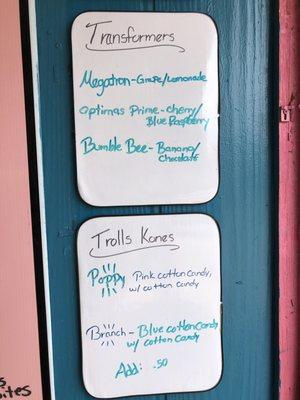 Transformers
Megatron-Grape/Lemonade
Optimas Prime-cherry/
Blue Raspberry
Bumble Bee-Banana/
Chocolate
Trolls Kones
Poppy Pink cotton candy,
w/ cotton candy
Branch-Blue cotton candy
w/ cotton candy
Add: .50